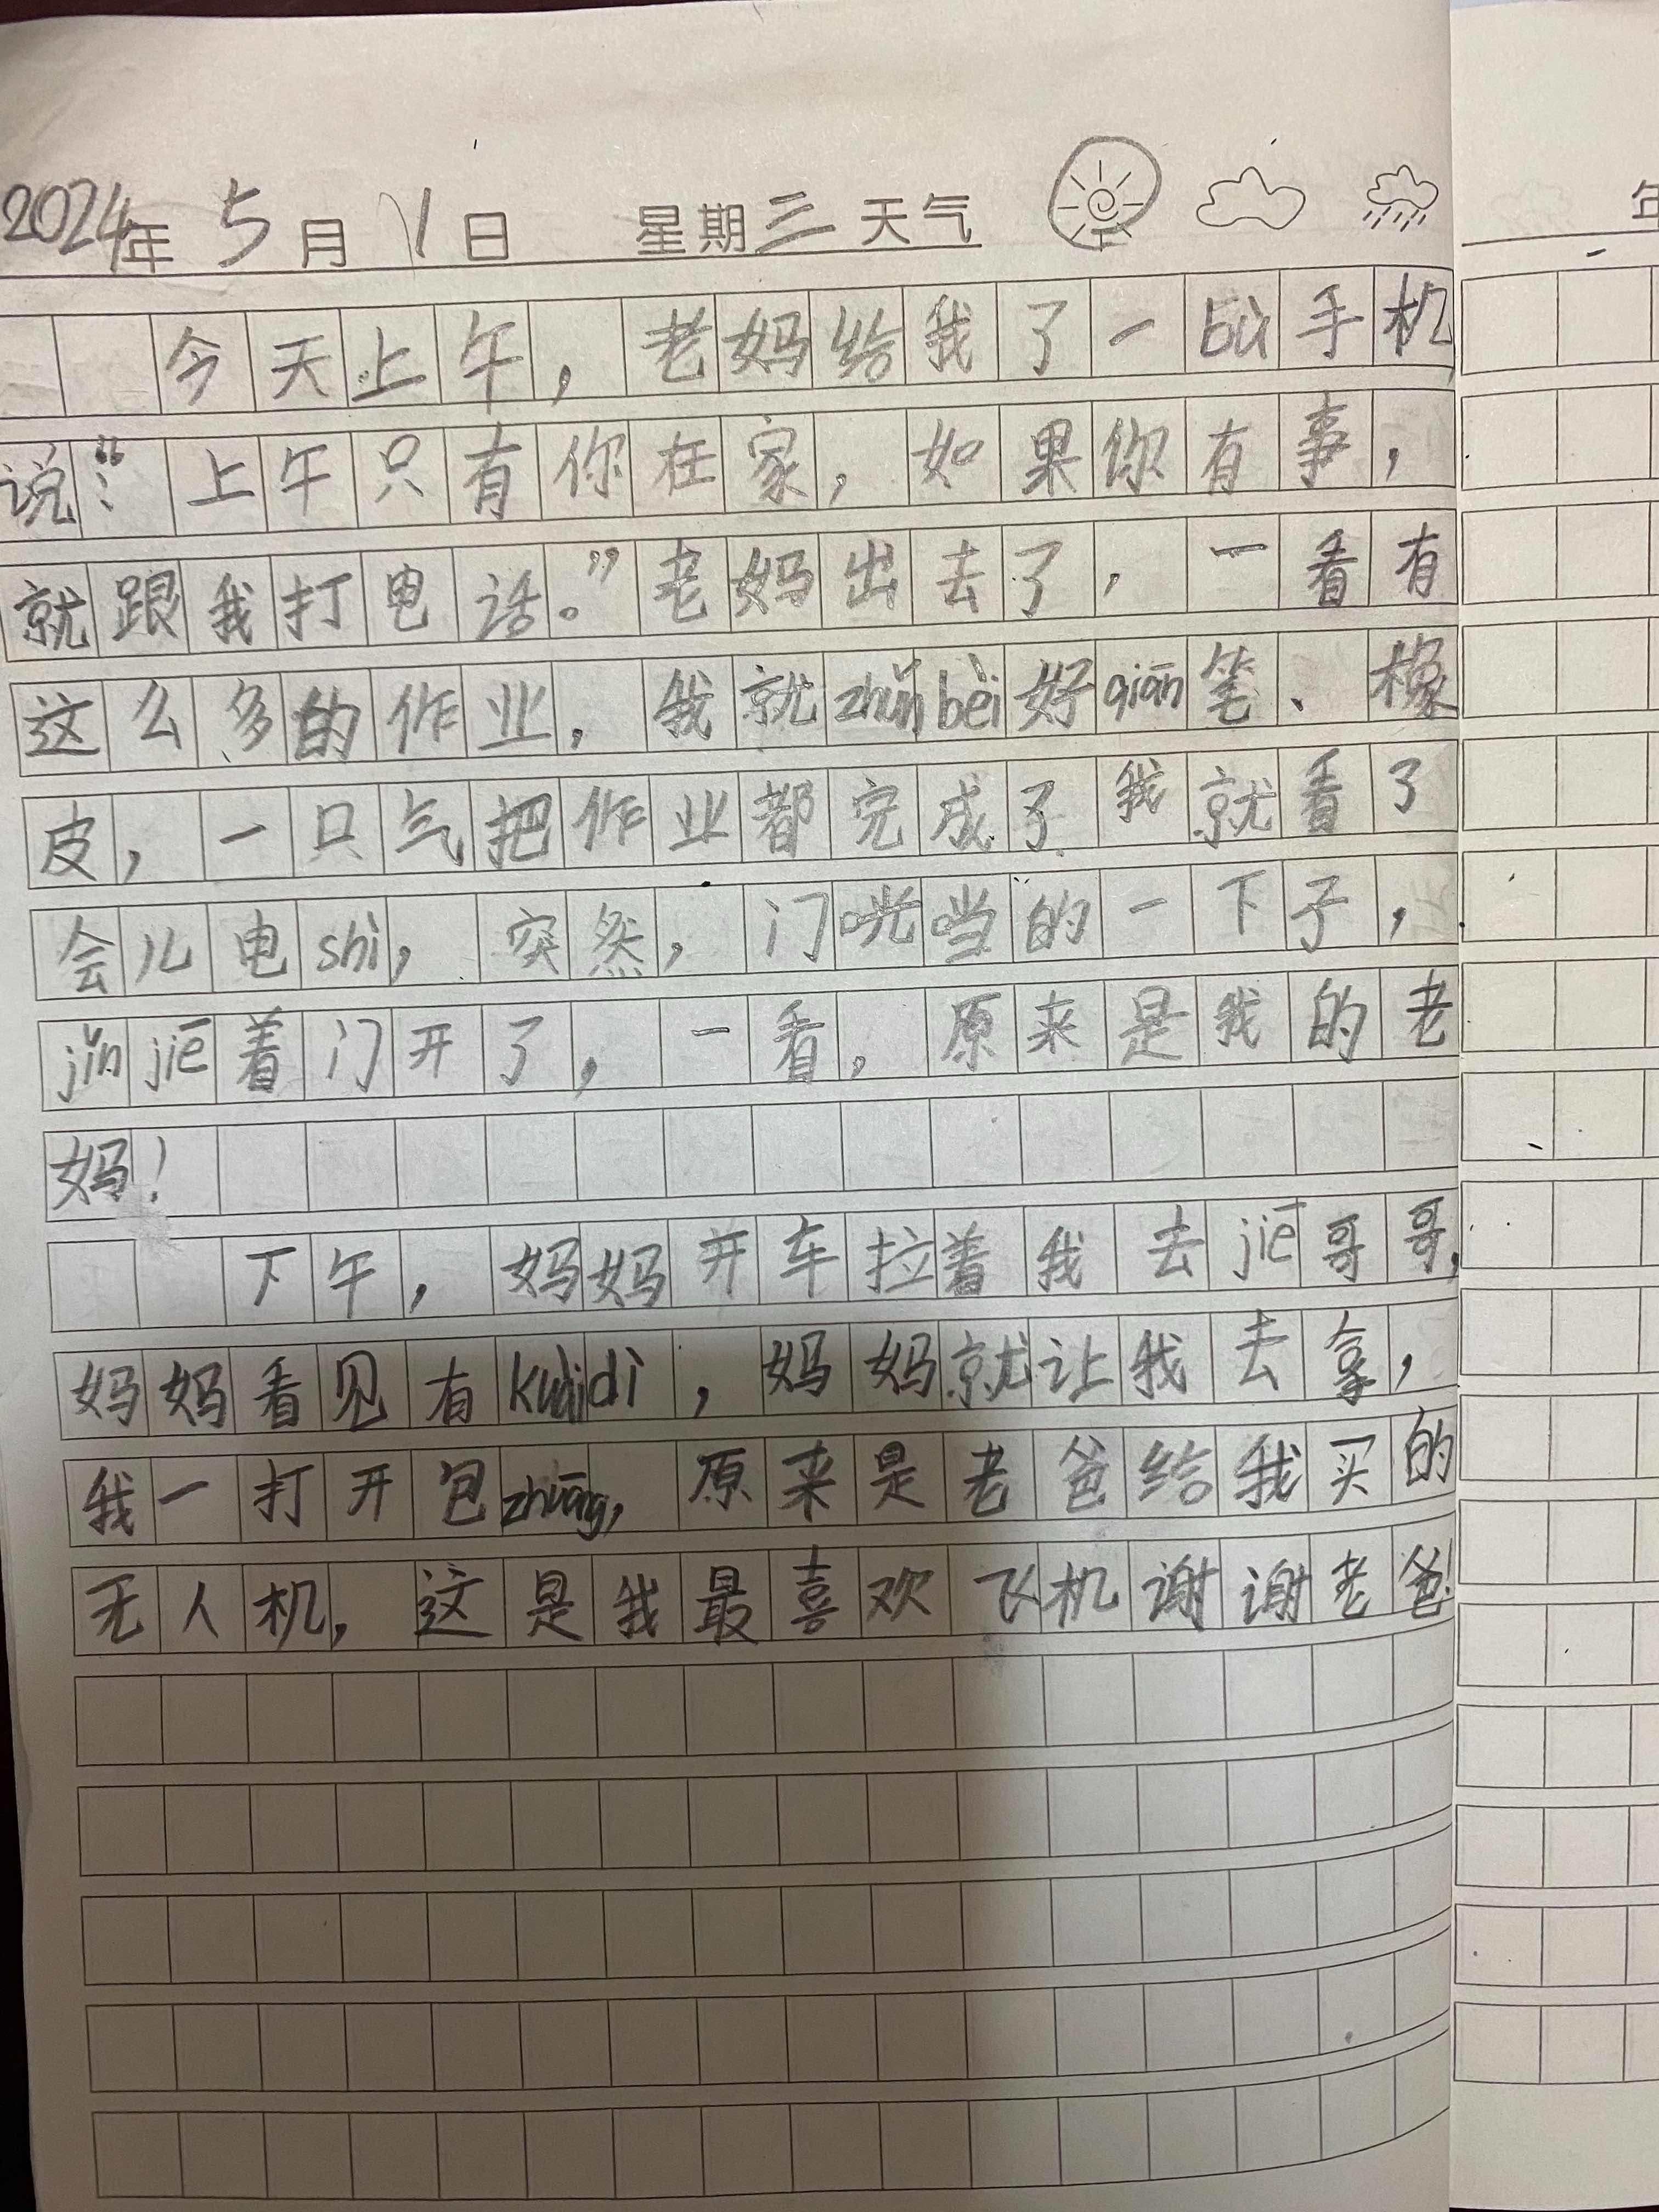 2024年 5月 1日 星期三 天气
今天上午，老妈给我了一bù手机
说：“上午只有你在家，如果你有事，
就跟我打电话。”老妈出去了，一看有
这么多的作业，我就zhǔnbèi好qiān笔、橡
皮，一只气把作业都完成了我就看了
会儿电shì，突然，门咣当的一下子，
jǐnjiē着门开了，一看，原来是我的老
妈！
下午，妈妈开车拉着我去jiē哥哥，
妈妈看见有kuàidì，妈妈就让我去拿，
我一打开包zhuāng，原来是老爸给我买的
无人机，这是我最喜欢飞机谢谢老爸！
年